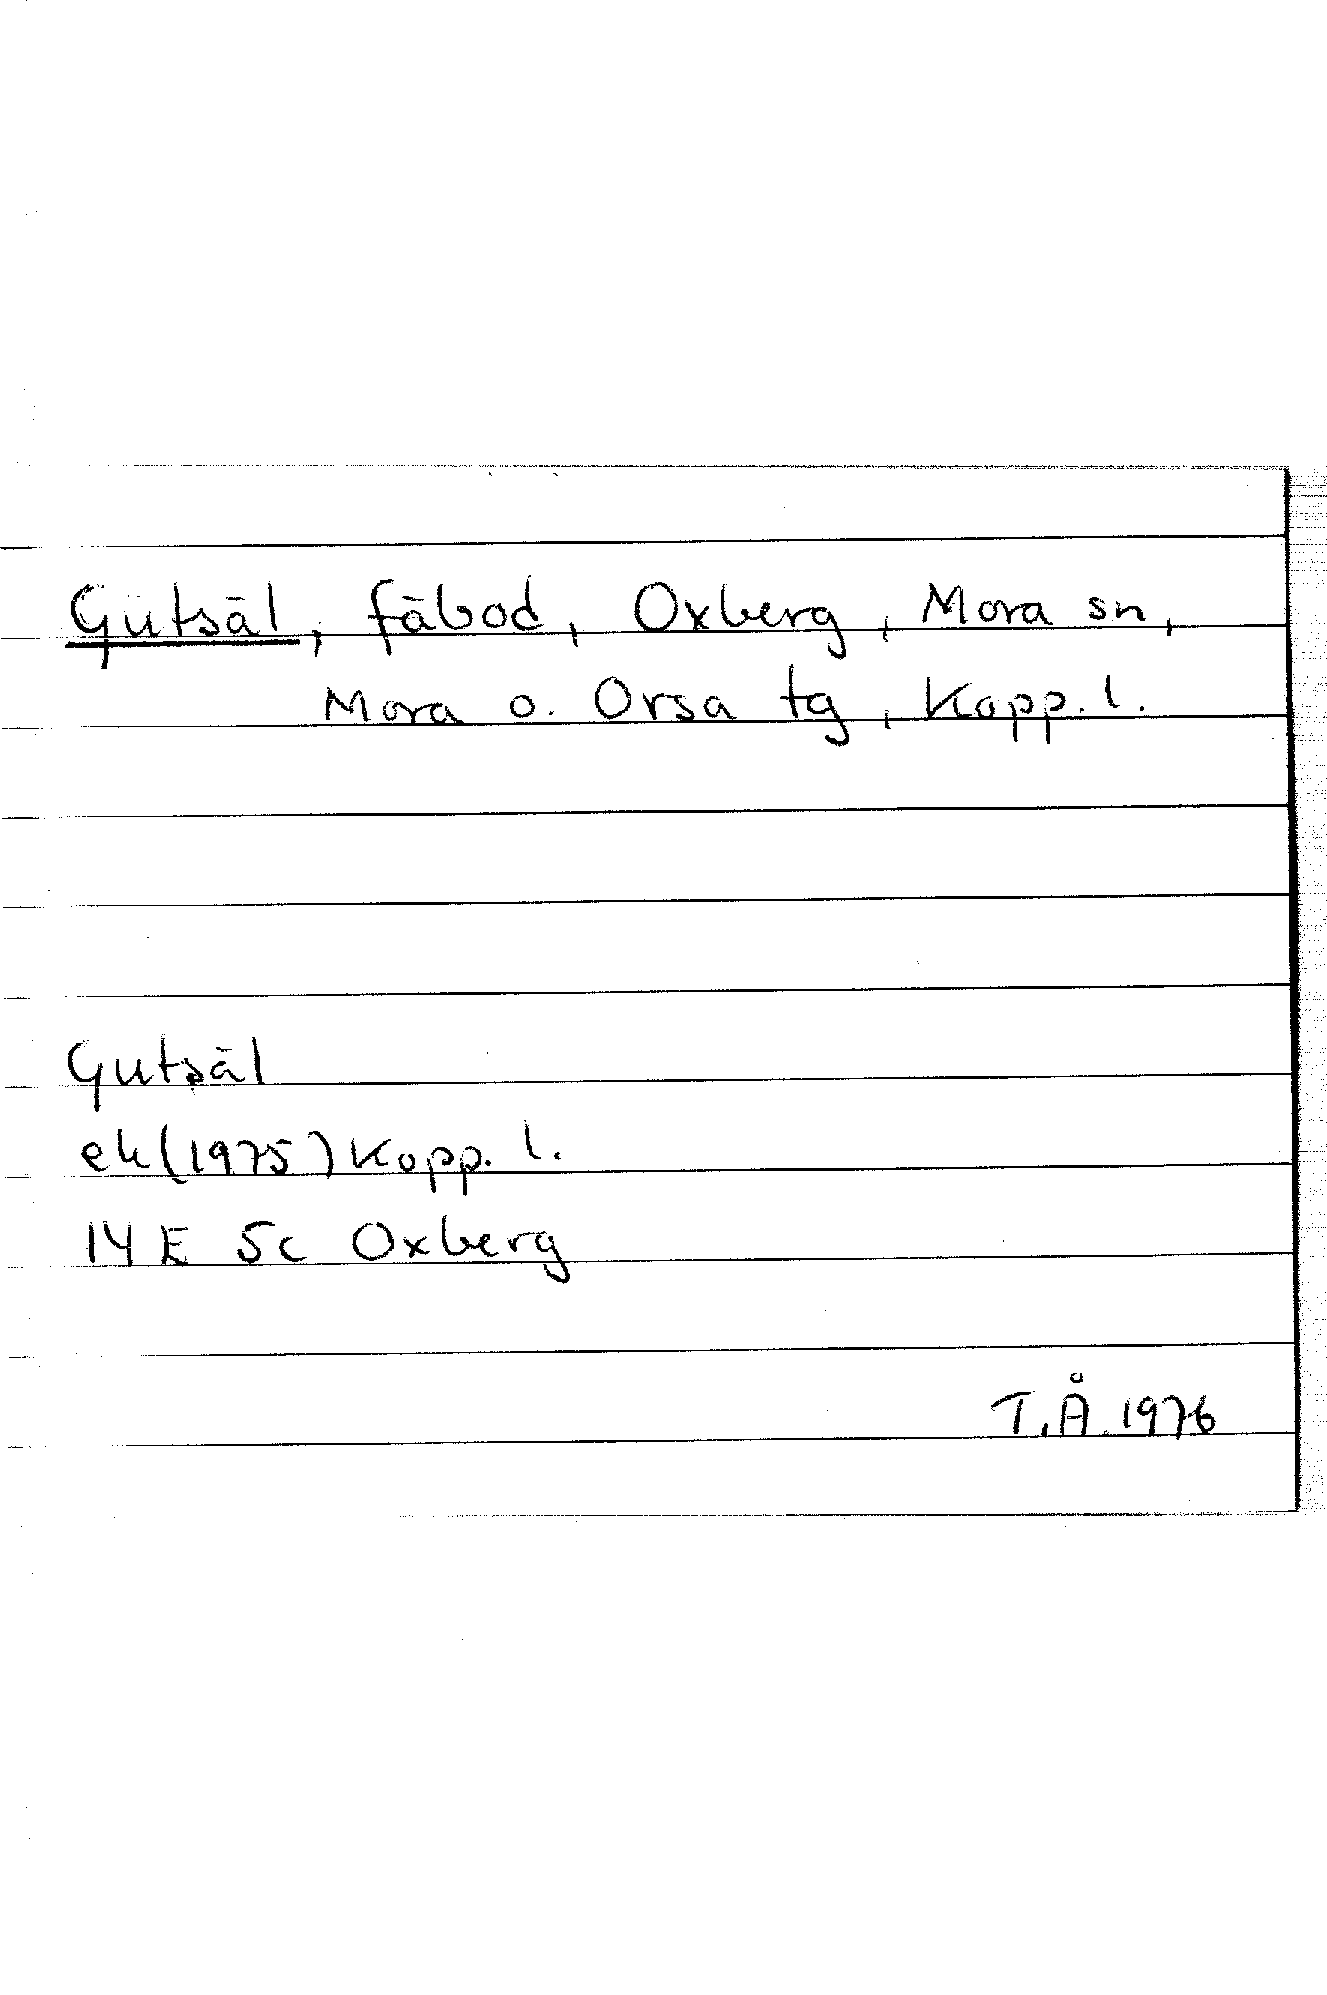 Gutsäl, fäbod, Oxberg, Mora sn,
Mora o. Orsa tg, Kopp. l.
Gutsäl
ek(1975) Kopp. l.
14 E 5c Oxberg
T.Å. 1976